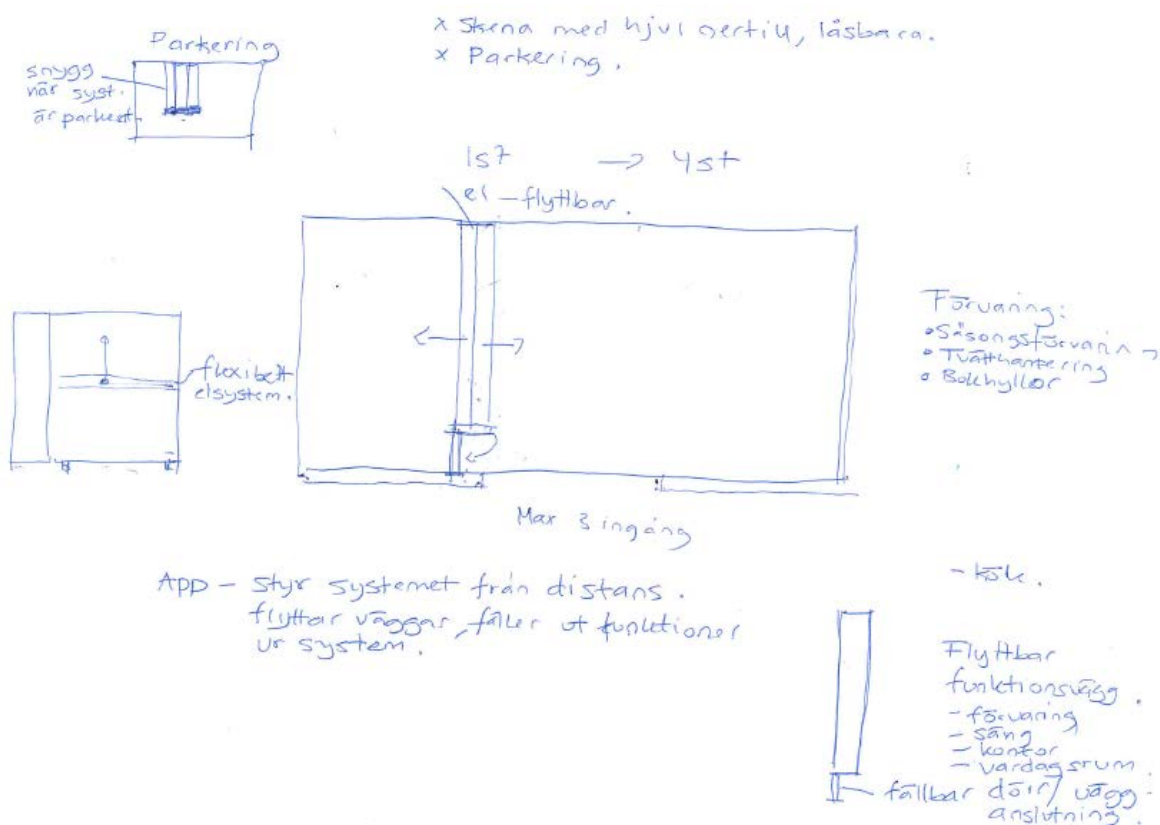 x Skena med hjul nertill, låsbara.
x Parkering.
Parkering
snygg
när syst.
är parkerat.
1st → 4st
el - flyttbar.
flexibelt
elsystem.
Förvaring:
• Säsongsförvaring
• Tvätthantering
• Bokhyllor
Max 3 ingång
APP - styr systemet från distans.
flyttar väggar, fäller ut funktioner
ur system.
- kök.
Flyttbar
funktionsvägg.
- förvaring
- säng
- kontor
- vardagsrum.
fällbar dörr/vägg
anslutning.